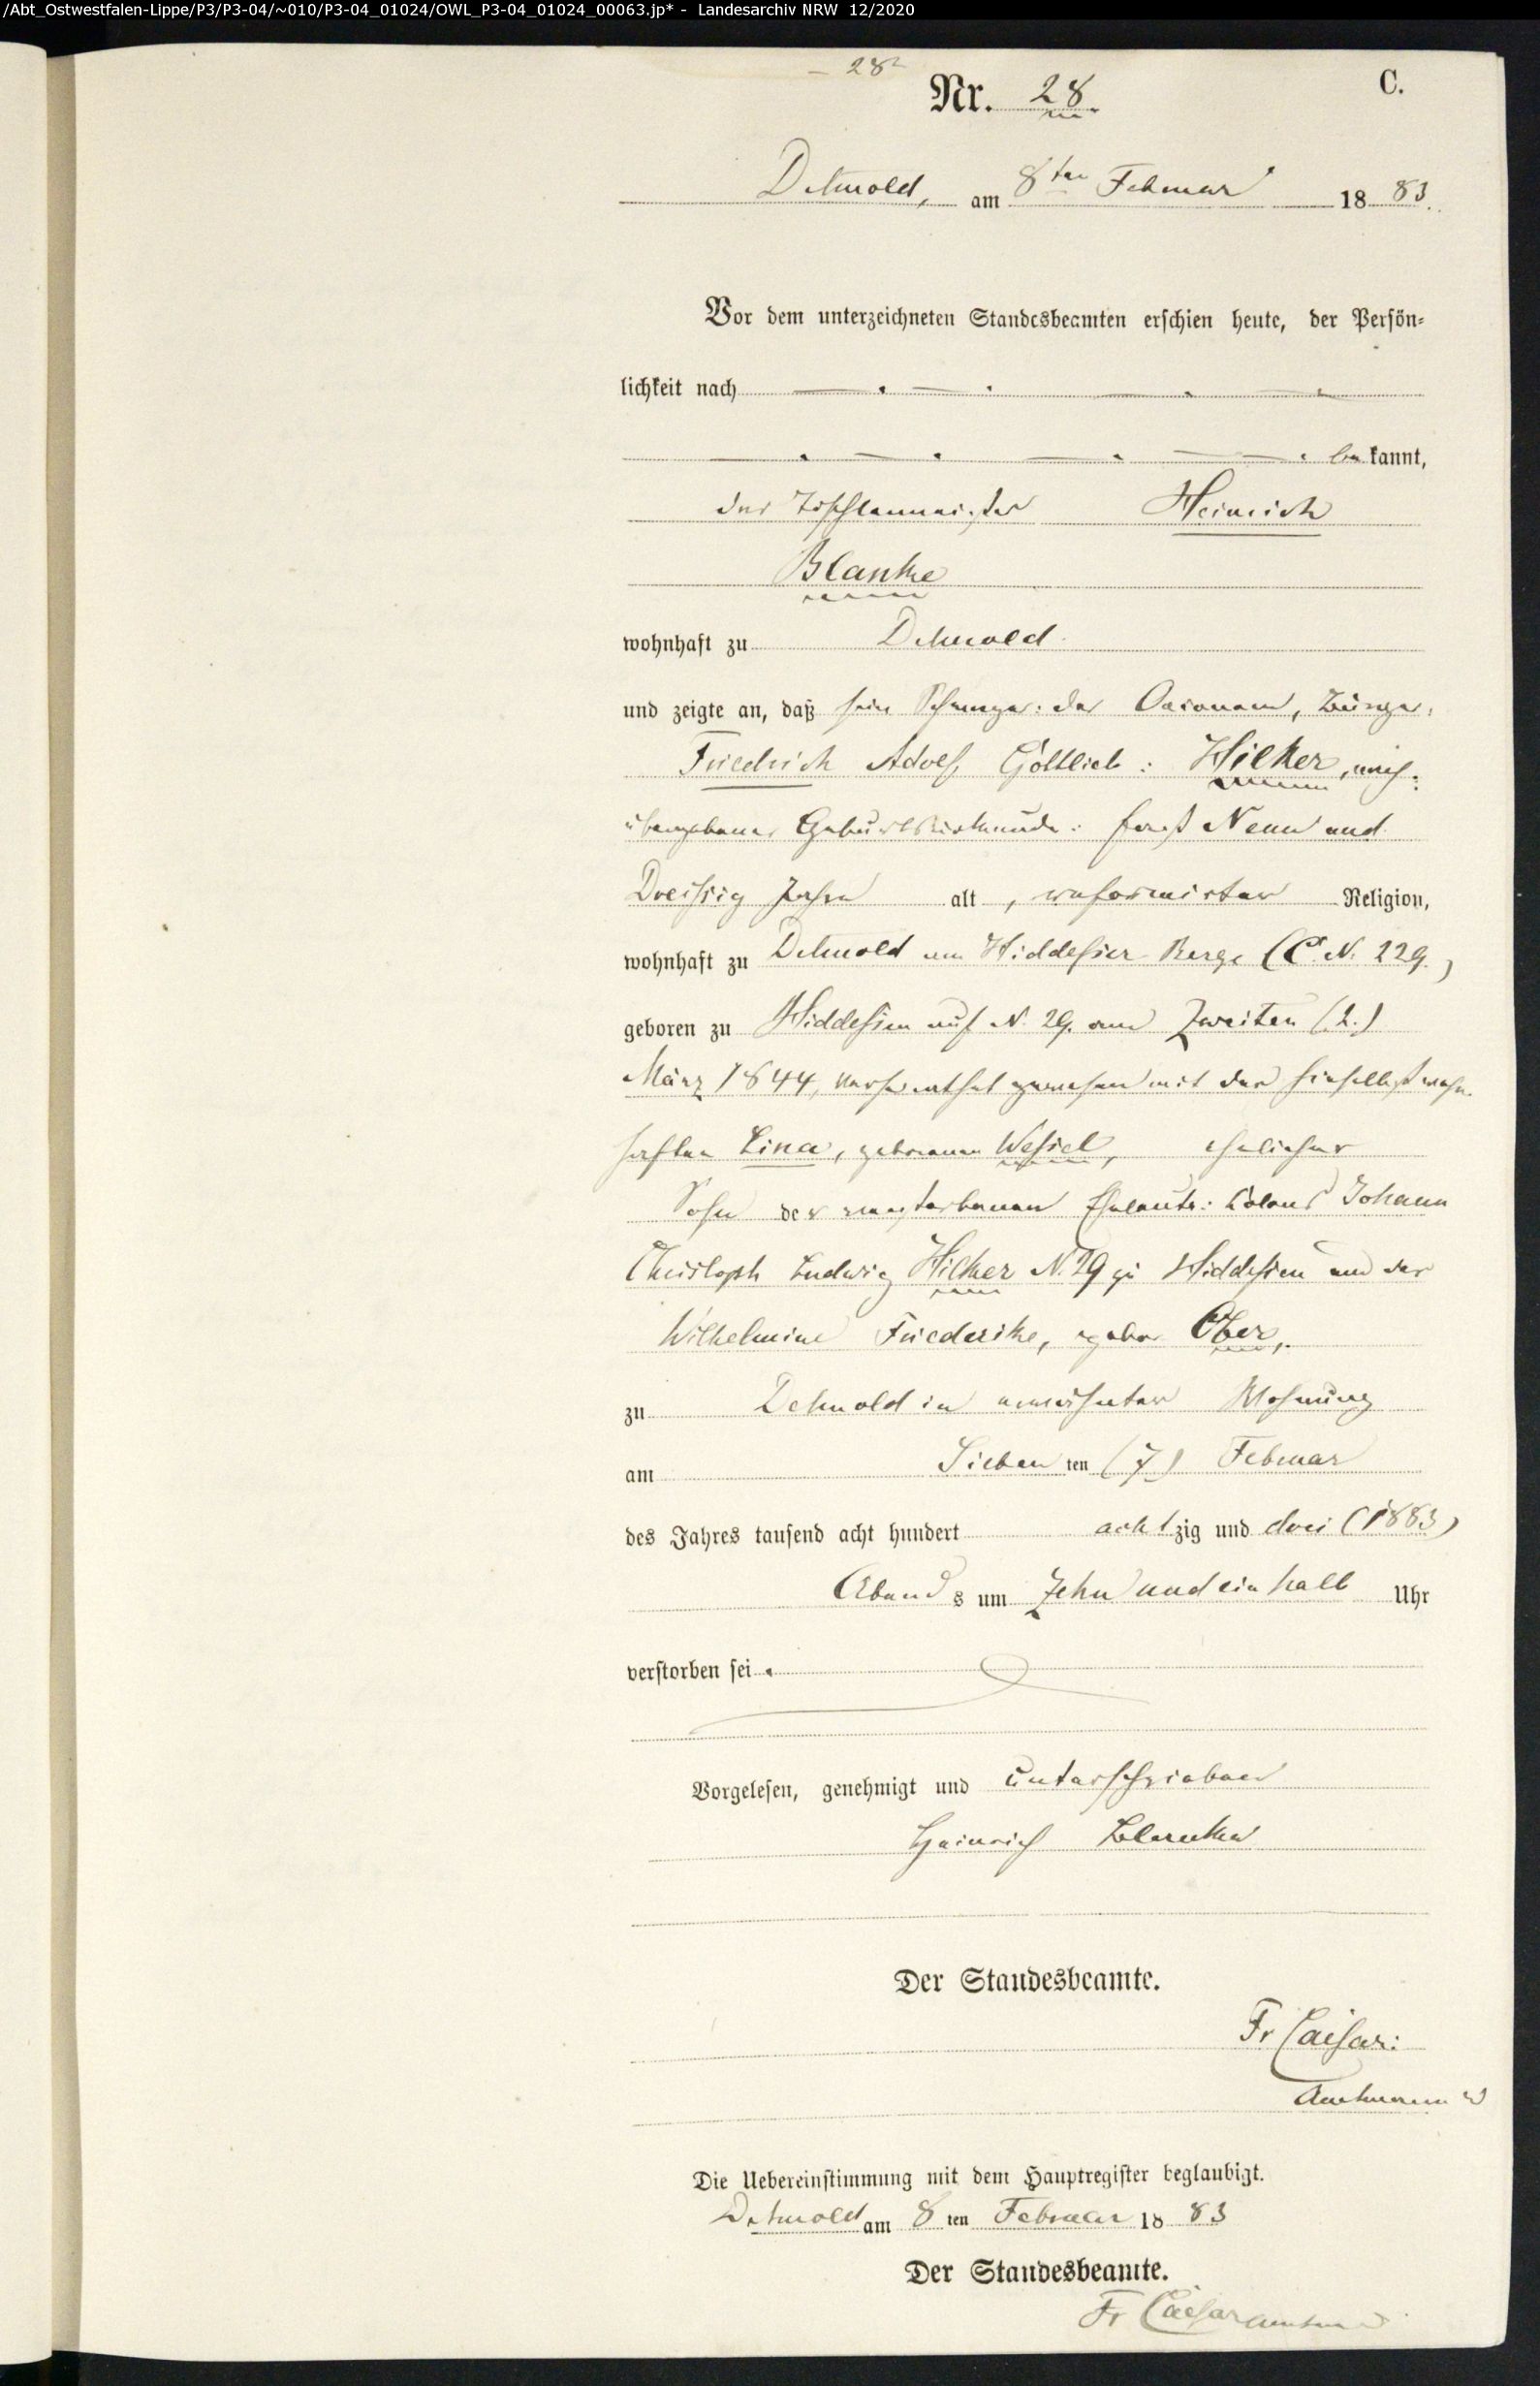 /Abt_Ostwestfalen-Lippe/P3/P3-04/~010/P3-04_01024/OWL_P3-04_01024_00063.jp* - Landesarchiv NRW 12/2020
28
C.
Nr. 28.
Detmold, am 8ten Februar 1883.
Vor dem unterzeichneten Standesbeamten erschien heute, der Persön-
lichkeit nach
bekannt,
der Tischlermeister Heinrich
Blanke
wohnhaft zu Detmold
und zeigte an, daß sein Schwager: der Oeconom, Bürger:
Friedrich Adolf Gottlieb: Hilker, nach:
übergebener Geburtsurkunde: fast Neun und
Dreißig Jahre alt, reformirter Religion,
wohnhaft zu Detmold am Hiddeser Berge (C. N. 229.)
geboren zu Hiddesen auf N. 29. am Zweiten (2.)
März 1844, verheirathet gewesen mit der hieselbst wohn-
haften Lina, geborenen Wessel, ehelicher
Sohn der verstorbenen Eheleute: Colons Johann
Christoph Ludwig Hilker N. 29 zu Hiddesen und der
Wilhelmine Friederike, gebor. Ober,
zu Detmold in erwähnter Wohnung
am Siebenten (7) Februar
des Jahres tausend acht hundert achtzig und drei (1883)
Abends um Zehn und ein halb Uhr
verstorben sei.
Vorgelesen, genehmigt und unterschrieben
Heinrich Blanke
Der Standesbeamte.
Fr Caesar:
Amtmann
Die Uebereinstimmung mit dem Hauptregister beglaubigt.
Detmold am 8ten Februar 1883
Der Standesbeamte.
Fr Caesar Amtmann